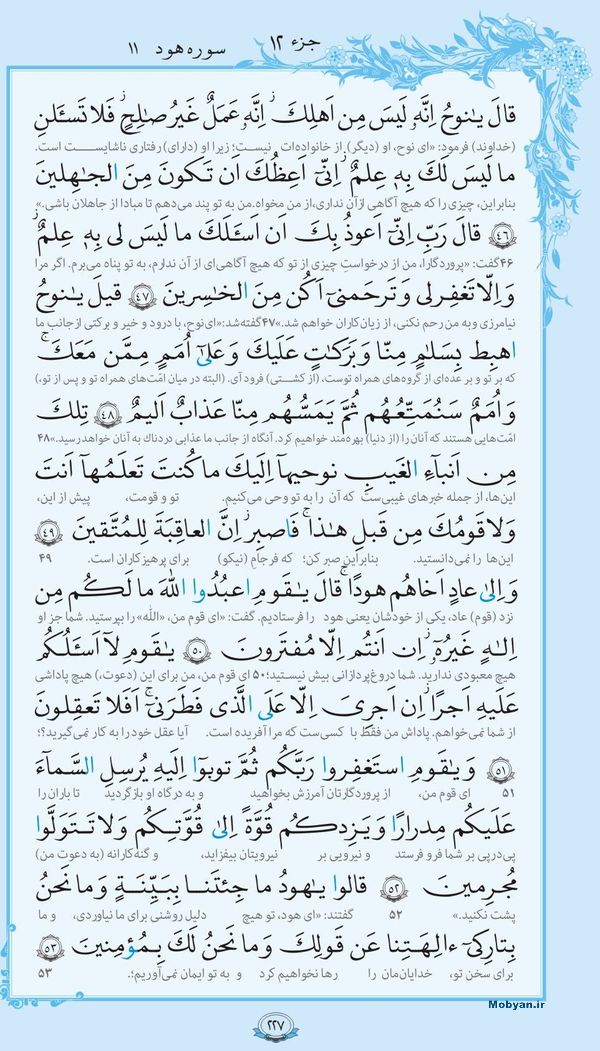 جزء ۱۲ سوره هود ۱۱
قالَ يٰنوحُ اِنَّهُ لَيسَ مِن اَهلِكَ ۖ اِنَّهُ عَمَلٌ غَيرُ صٰلِحٍ ۖ فَلا تَسـَٔلنِ
(خداوند) فرمود: «ای نوح، او (دیگر) از خانواده‌ات نیست؛ زیرا او (دارای) رفتاری ناشایست است.
ما لَيسَ لَكَ بِهِ عِلمٌ ۖ اِنّى اَعِظُكَ اَن تَكونَ مِنَ الجٰهِلينَ
بنابراین، چیزی را که هیچ آگاهی از آن نداری، از من مخواه. من به تو پند می‌دهم تا مبادا از جاهلان باشی.»
﴿۴۶﴾ قالَ رَبِّ اِنّى اَعوذُ بِكَ اَن اَسـَٔلَكَ ما لَيسَ لى بِهِ عِلمٌ ۖ
۴۶ گفت: «پروردگارا، من از درخواستِ چیزی از تو که هیچ آگاهی‌ای از آن ندارم، به تو پناه می‌برم. اگر مرا
وَ اِلّا تَغفِر لى وَ تَرحَمنى اَكُن مِنَ الخٰسِرينَ ﴿۴۷﴾ قيلَ يٰنوحُ
نیامرزی و به من رحم نکنی، از زیان‌کاران خواهم شد.» ۴۷ گفته شد: «ای نوح، با درود و خیر و برکتی از جانب ما
اهبِط بِسَلٰمٍ مِنّا وَ بَرَكٰتٍ عَلَيكَ وَ عَلىٰ اُمَمٍ مِمَّن مَعَكَ ۚ
که بر تو و بر عده‌ای از گروه‌های همراه توست، (از کشتی) فرود آی. (البته در میان امّت‌های همراه تو و پس از تو،)
وَ اُمَمٌ سَنُمَتِّعُهُم ثُمَّ يَمَسُّهُم مِنّا عَذابٌ اَليمٌ ﴿۴۸﴾ تِلكَ
امّت‌هایی هستند که آنان را (از دنیا) بهره‌مند خواهیم کرد. آنگاه از جانب ما عذابی دردناک به آنان خواهد رسید.» ۴۸
مِن اَنباءِ الغَيبِ نوحيها اِلَيكَ ما كُنتَ تَعلَمُها اَنتَ
این‌ها، از جمله خبرهای غیبی‌ست که آن را به تو وحی می‌کنیم. تو و قومت، پیش از این،
وَ لا قَومُكَ مِن قَبلِ هٰذا ۖ فَاصبِر ۖ اِنَّ العاقِبَةَ لِلمُتَّقينَ ﴿۴۹﴾
این‌ها را نمی‌دانستید. بنابراین صبر کن؛ که فرجامِ (نیکو) برای پرهیزکاران است. ۴۹
وَ اِلىٰ عادٍ اَخاهُم هودًا ۚ قالَ يٰقَومِ اعبُدُوا اللهَ ما لَكُم مِن
نزد (قوم) عاد، یکی از خودشان یعنی هود را فرستادیم. گفت: «ای قوم من، «الله» را بپرستید. شما جز او
اِلٰهٍ غَيرُهُ ۖ اِن اَنتُم اِلّا مُفتَرونَ ﴿۵۰﴾ يٰقَومِ لا اَسـَٔلُكُم
هیچ معبودی ندارید. شما دروغ‌پردازانی بیش نیستید؛ ۵۰ ای قوم من، من برای این (دعوت)، هیچ پاداشی
عَلَيهِ اَجرًا ۖ اِن اَجرِىَ اِلّا عَلَى الَّذى فَطَرَنى ۚ اَفَلا تَعقِلونَ
از شما نمی‌خواهم. پاداش من فقط با کسی‌ست که مرا آفریده است. آیا عقل خود را به کار نمی‌گیرید؟؛
﴿۵۱﴾ وَ يٰقَومِ استَغفِروا رَبَّكُم ثُمَّ توبوا اِلَيهِ يُرسِلِ السَّماءَ
۵۱ ای قوم من، از پروردگارتان آمرزش بخواهید و به درگاه او بازگردید تا باران را
عَلَيكُم مِدرارًا وَ يَزِدكُم قُوَّةً اِلىٰ قُوَّتِكُم وَ لا تَتَوَلَّوا
پی‌درپی بر شما فرو فرستد و نیرویی بر نیرویتان بیفزاید، و گنه‌کارانه (به دعوت من)
مُجرِمينَ ﴿۵۲﴾ قالوا يٰهودُ ما جِئتَنا بِبَيِّنَةٍ وَ ما نَحنُ
پشت نکنید.» ۵۲ گفتند: «ای هود، تو هیچ دلیل روشنی برای ما نیاوردی، و ما
بِتارِكى ءالِهَتِنا عَن قَولِكَ وَ ما نَحنُ لَكَ بِمُؤمِنينَ ﴿۵۳﴾
برای سخن تو، خدایان‌مان را رها نخواهیم کرد و به تو ایمان نمی‌آوریم؛. ۵۳
Mobyan.ir
۲۲۷